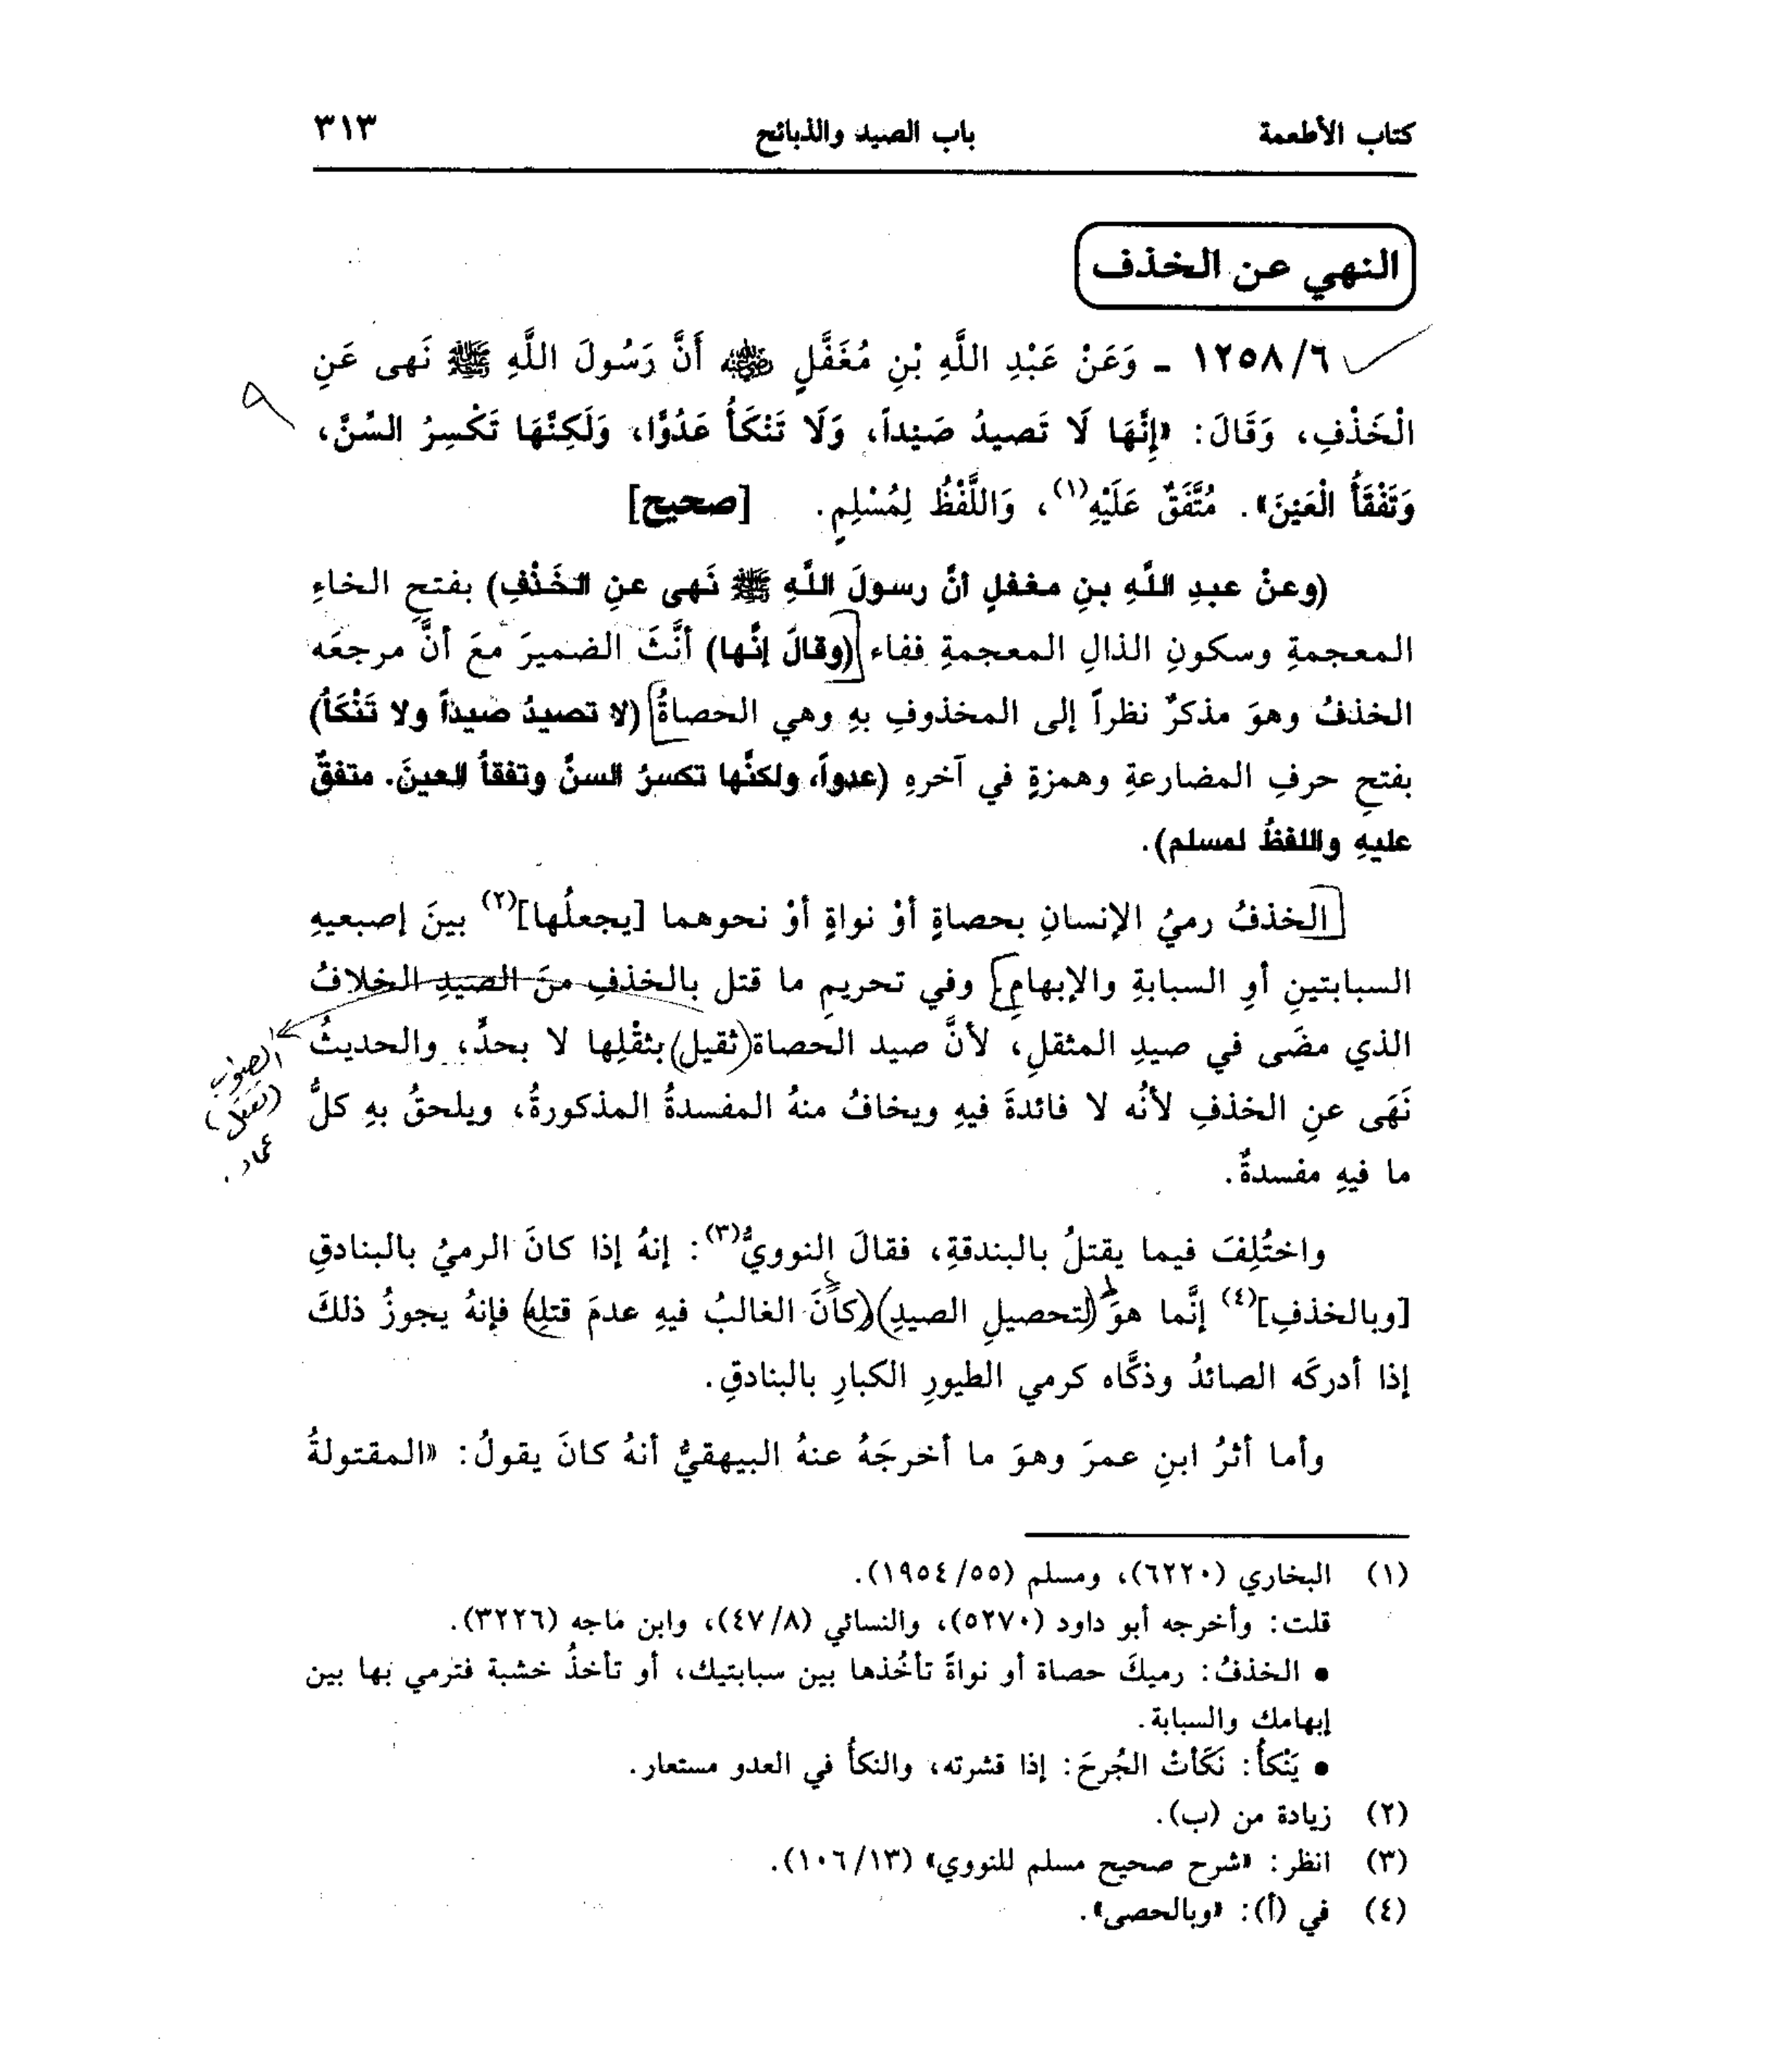 كتاب الأطعمة باب الصيد والذبائح ٣١٣
النهي عن الخذف
٦/١٢٥٨ - وَعَنْ عَبْدِ اللَّهِ بْنِ مُغَفَّلٍ رضي الله عنه أَنَّ رَسُولَ اللَّهِ ﷺ نَهى عَنِ
الْخَذْفِ، وَقَالَ: «إِنَّهَا لَا تَصيدُ صَيْداً، وَلَا تَنْكَأُ عَدُوًّا، وَلَكِنَّهَا تَكْسِرُ السِّنَّ،
٩
وَتَفْقَأُ الْعَيْنَ». مُتَّفَقٌ عَلَيْهِ(١)، وَاللَّفْظُ لِمُسْلِمٍ. [صحيح]
(وعنْ عبدِ اللَّهِ بنِ مغفلٍ أنَّ رسولَ اللَّهِ ﷺ نَهى عنِ الخَذْفِ) بفتحِ الخاءِ
المعجمةِ وسكونِ الذالِ المعجمةِ ففاء (وقالَ إنَّها) أنَّثَ الضميرَ معَ أنَّ مرجعَه
الخذفُ وهوَ مذكرٌ نظراً إلى المخذوفِ بهِ وهي الحصاةُ (لا تصيدُ صيداً ولا تَنْكَأُ)
بفتحِ حرفِ المضارعةِ وهمزةٍ في آخرهِ (عدواً، ولكنَّها تكسرُ السنَّ وتفقأُ العينَ. متفقٌ
عليهِ واللفظُ لمسلم).
الخذفُ رميُ الإنسانِ بحصاةٍ أوْ نواةٍ أوْ نحوهما [يجعلُها](٢) بينَ إصبعيهِ
السبابتينِ أوِ السبابةِ والإبهامِ وفي تحريمِ ما قتل بالخذفِ منَ الصيدِ الخلافُ
الذي مضَى في صيدِ المثقلِ، لأنَّ صيد الحصاة (ثقيل) بثقْلِها لا بحدٍّ، والحديثُ
الصواب
(يقتل)
نَهَى عنِ الخذفِ لأنُه لا فائدةَ فيهِ ويخافُ منهُ المفسدةُ المذكورةُ، ويلحقُ بهِ كلُّ
ما فيهِ مفسدةٌ.
واختُلِفَ فيما يقتلُ بالبندقةِ، فقالَ النوويُّ(٣): إنهُ إذا كانَ الرميُ بالبنادقِ
[وبالخذفِ](٤) إنَّما هوَ (لتحصيلِ الصيدِ) (وكأنَّ الغالبُ فيهِ عدمَ قتلِهِ) فإنهُ يجوزُ ذلكَ
إذا أدركَه الصائدُ وذكَّاه كرمي الطيورِ الكبارِ بالبنادقِ.
وأما أثرُ ابنِ عمرَ وهوَ ما أخرجَهُ عنهُ البيهقيُّ أنهُ كانَ يقولُ: «المقتولةُ
(١) البخاري (٦٢٢٠)، ومسلم (٥٥/ ١٩٥٤).
قلت: وأخرجه أبو داود (٥٢٧٠)، والنسائي (٤٧/٨)، وابن ماجه (٣٢٢٦).
● الخذفُ: رميكَ حصاة أو نواةً تأخُذها بين سبابتيك، أو تأخذُ خشبة فترمي بها بين
إبهامك والسبابة.
● يَنْكأُ: نَكَأتْ الجُرحَ: إذا قشرته، والنكأُ في العدو مستعار.
(٢) زيادة من (ب).
(٣) انظر: «شرح صحيح مسلم للنووي» (١٠٦/١٣).
(٤) في (أ): «وبالحصى».